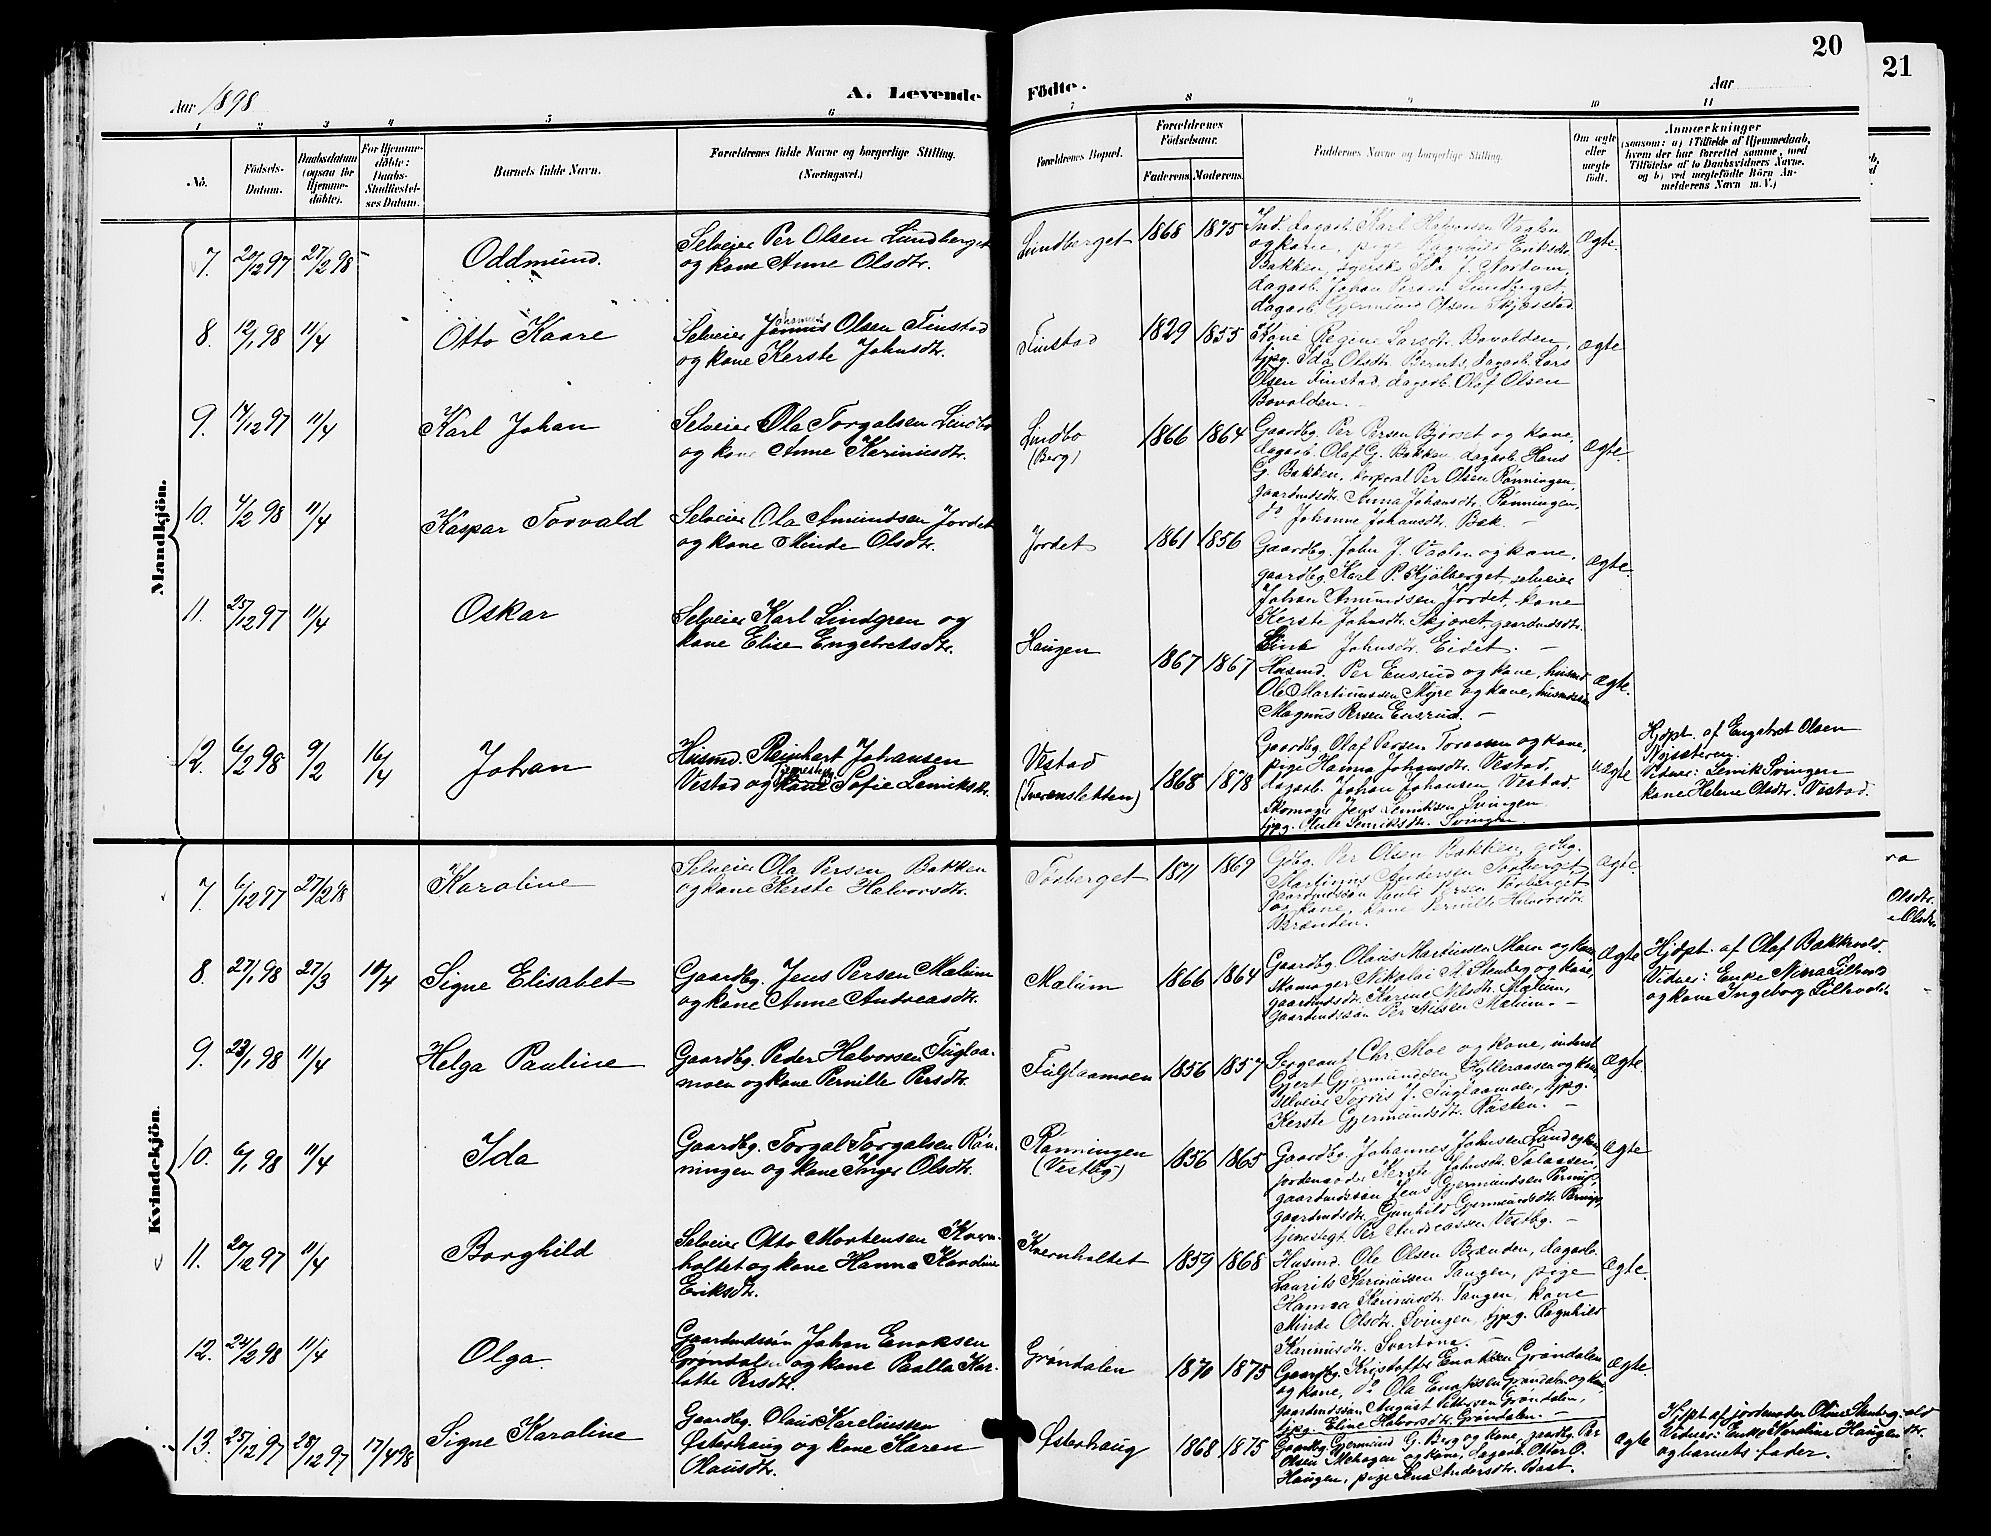 20
21
Aar 1898
A. Levende Födte.
Aar
1 2 3 4 5 6 7 8 9 10 11
No.
Födsels-Datum.
Daabsdatum (ogsaa for Hjemme-döbte).
For Hjemme-döbte: Daabs-Stadfæstel-ses Datum.
Barnets fulde Navn.
Forældrenes fulde Navne og borgerlige Stilling. (Næringsvei.)
Forældrenes Bopæl.
Forældrenes Födselsaar.
Faderens. Moderens.
Faddernes Navne og borgerlige Stilling.
Om ægte eller uægte født.
Anmærkninger
(saasom: a) i Tilfælde af Hjemmedaab, hvem der har forrettet samme, med Tilføielse af to Daabsvidners Navne. og b) ved uægtefödte Börn An-melderens Navn m. V.)
Mandkjön.
7. 20/12 97 27/2 98 Oddmund.
Selveier Per Olsen Lundberget
og kone Anne Olsdtr.
Lundberget 1868 1875
Ind. dagarb. Karl Halvorsen Vaalen
og kone, pige Dagmar Eriksdtr.
Bakken, syerske Ida J. Nordom,
dagarb. Johan Persen Lundberget,
dagarb. Gjermund Olsen Skjærstad.
Ægte.
8. 12/1 98 11/4 Otto Kaare
Selveier Johannes Olsen Finstad
og kone Kerste Johnsdtr.
Finstad 1829 1855
Kone Regine Larsdtr. Bovolden,
tjpg. Ida Olsdtr. Bernts, dagarb. Lars
Olsen Finstad, dagarb. Olaf Olsen
Bovolden.
Ægte
9. 14/12 97 11/4 Karl Johan
Selveier Ola Torgalsen Lindbo
og kone Anne Karinusdtr.
Lindbo
(Berg)
1866 1864
Gaardbg. Per Persen Bjørset og kone,
dagarb. Olaf G. Bakken, dagarb. Hans
G. Bakken, korporal Per Olsen Rønningen,
gaardmdsdtr. Anna Johansdtr. Rønningen,
do Johanne Johansdtr. Bak. —
Ægte.
10. 4/2 98 11/4 Kaspar Torvald
Selveier Ola Amundsen Jordet
og kone Minde Olsdtr.
Jordet 1861 1856
Gaardbg. John J. Vaalen og kone,
gaardbg. Karl P. Kjølberget, selveier
Johan Amundsen Jordet, kone
Kerste Johnsdtr. Skjæret, gaardmdsdtr.
Johnsdtr. Eidet. —
Ægte.
11. 25/12 97 11/4 Oskar
Selveier Karl Lindgren og
kone Elise Engebretsdtr.
Haugen 1867 1867
Husmd. Per Ensrud og kone, husmd
Ole Martinussen Myre og kone, husmdssøn
Magnus Persen Ensrud. —
Ægte.
12. 6/2 98 9/2 16/4 Johan
Husmd. Reinhart Johansen
Vestad og tjenestepg Sofie Lemiksdtr.
Vestad
(Tverensletten)
1868 1878
Gaardbg. Olaf Persen Toraasen og kone,
pige Hanna Johansdtr. Vestad,
dagarb. Johan Johansen Vestad,
Skomager Jens Lemiksen Svingen
tjpg. Lemiksdtr. Svingen.
Uægte
Hjdpt. af Engebret Olsen
Vidner: Lemik Svingen
kone Helene Olsdtr. Vestad.
Kvindekjön.
7. 6/12 97 27/2 98 Karoline
Selveier Ola Persen Bakken
og kone Kerste Halvorsdtr.
Torberget 1871 1869
Gdbg. Per Olsen Bakken, gdbg.
Martinus Andersen Torberget,
gaardmdssøn Paul Persen Torberget
og kone, kone Pernille Halvorsdtr.
Brænden.
Ægte
8. 27/1 98 27/3 10/4 Signe Elisabet
Gaardbg. Jens Persen Mælum
og kone Anne Andreasdtr.
Mælum 1866 1864
Gaardbg. Olaus Martinssen Moen og kone,
Skomager Nikolai N. Stenberg og kone,
gaardmdsdtr. Karine Nilsdtr. Mælum,
gaardmdssøn Per Nilsen Mælum. —
Ægte
Hjdpt. af Olaf Bakkvold.
Vidner: Enke Lilhvold
og kone Ingeborg Lilhvold.
9. 23/1 98 11/4 Helga Pauline
Gaardbg. Peder Halvorsen Fuglaa-
moen og kone Pernille Persdtr.
Fuglaamoen 1856 1857
Sergeant Chr. Moe og kone, inderst
Gjert Gjermundsen Hylleraasen og kone,
selveier Torris J. Fuglaamoen, tjpg.
Kerste Gjermundsdtr. Rasten. —
Ægte.
10. 6/1 98 11/4 Ida
Gaardbg. Torgal Torgalsen Røn-
ningen og kone Inger Olsdtr.
Rønningen
(Vestby)
1856 1865
Gaardbg. Johannes Johnsen Lund og kone,
jordemoder Kerste Johnsdtr. Talaasen,
gaardmdssøn Jens Gjermundsen Perming,
gaardmdsdtr. Gunhild Gjermundsdtr. Perming,
tjenestegt. Per Andreassen Vestby. —
Ægte
11. 20/12 97 11/4 Borghild
Selveier Otto Mortensen Kvern-
holtet og kone Hanna Karoline
Eriksdtr.
Kvernholtet 1859 1868
Husmd. Ole Olsen Brænden, dagarb.
Laurits Karinussen Tangen, pige
Hanna Karinusdtr. Tangen, kone
Minde Olsdtr. Svingen, tjpg. Ragnhild
Karinusdtr. Svartona. —
Ægte.
12. 24/2 98 11/4 Olga.
Gaardmdssøn Johan Enoksen
Grøndalen og kone Paulla Kar-
lotte Persdtr.
Grøndalen 1870 1875
Gaardbg. Kristoffer Enoksen Grøndalen
og kone, do Ola Enoksen Grøndalen og kone,
gaardmdssøn August Pettersen Grøndalen,
tjpg. Eline Halvorsdtr. Grøndalen. —
Ægte
13. 25/12 97 28/12 97 17/4 98 Signe Karoline
Gaardbg. Olaus Kareliussen
Østerhaug og kone Karen
Olausdtr.
Østerhaug 1868 1875
Gaardbg. Gjermund G. Berg og kone, gaardbg. Per
Olsen Mehagen og kone, dagarb. Ottar O.
Haugen, pige Lena Andersdtr. Bast.
Ægte
Hjdpt. af jordmoder Oline Stenberg.
Vidner: Enke Karoline Haugen
og barnets fader.